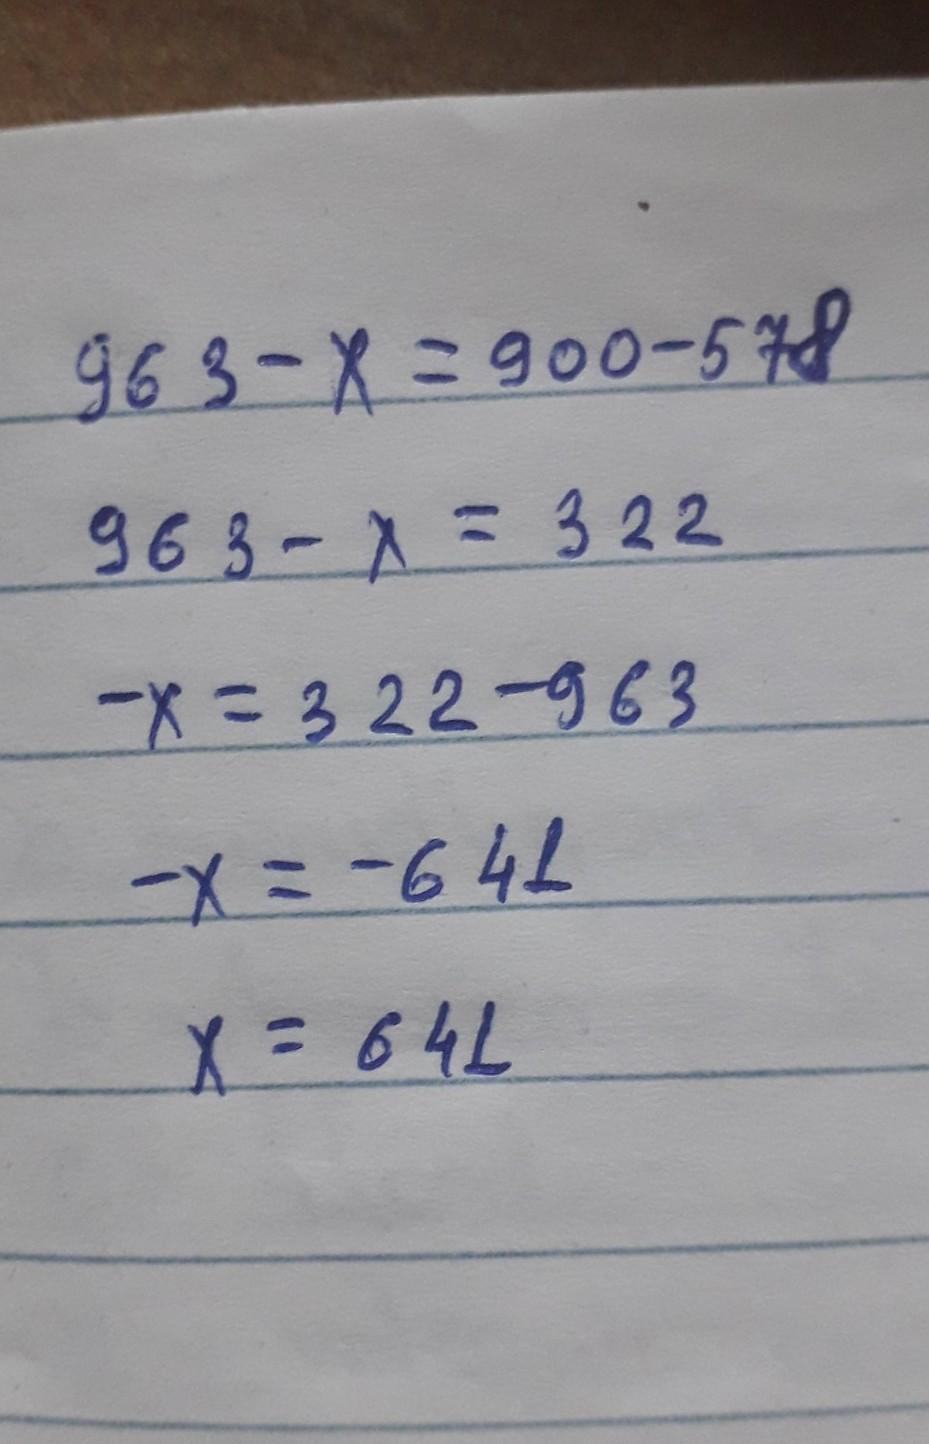 963-x=900-578
963-x=322
-x=322-963
-x=-641
x=641